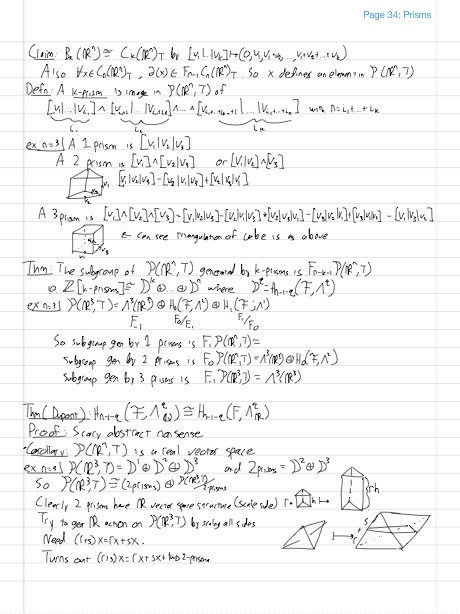 Page 34: Prisms
Claim: Bₖ(ℝⁿ) ≅ Cₖ(ℝⁿ)_T by [v₁|...|vₖ]↦(0,v₁,v₁+v₂,...,v₁+v₂+...+vₖ)
Also ∀x∈Cₙ(ℝⁿ)_T, ∂(x)∈ Fₙ₋₁Cₙ(ℝⁿ)_T. So x defines an element in P(ℝⁿ,T)
Defn: A k-prism is image in P(ℝⁿ,T) of
[v₁|...|v_{i₁}] ∧ [v_{i₁+1}|...|v_{i₁+i₂}] ∧ ... ∧ [v_{i₁+...+i_{k-1}+1}|...|v_{i₁+...+i_k}] with n=i₁+...+iₖ
ex n=3 A 1 prism is [v₁|v₂|v₃]
A 2 prism is [v₁]∧[v₂|v₃] or [v₁|v₂]∧[v₃]
[v₁|v₂|v₃]-[v₂|v₁|v₃]+[v₂|v₃|v₁]
A 3 prism is [v₁]∧[v₂]∧[v₃]=[v₁|v₂|v₃]-[v₂|v₁|v₃]+[v₂|v₃|v₁]-[v₃|v₂|v₁]+[v₃|v₁|v₂]-[v₁|v₃|v₂]
← can see triangulation of cube is as above
Thm: The subgroup of P(ℝⁿ,T) generated by k-prisms is Fₙ₋ₖ₋₁P(ℝⁿ,T)
ie. ℤ[k-prisms]≅ Dᵏ⊕...⊕Dⁿ where D^q=H_{n-1-q}(F,Λ^q)
ex n=3 P(ℝ³,T)=Λ³(ℝ³)⊕H₀(F,Λ²)⊕H₁(F,Λ¹)
F₋₁ F₀/F₋₁ F₁/F₀
So subgroup gen by 1 prisms is F₁P(ℝ³,T)=
subgroup gen by 2 prisms is F₀P(ℝ³,T)=Λ³(ℝ³)⊕H₀(F,Λ²)
subgroup gen by 3 prisms is F₋₁P(ℝ³,T)=Λ³(ℝ³)
Thm (Dupont): H_{n-1-q}(F,Λ^q_ℚ)≅H_{n-1-q}(F,Λ^q_ℝ)
Proof: Scary abstract nonsense
Corollary: P(ℝⁿ,T) is a real vector space
ex n=3 P(ℝ³,T)=D¹⊕D²⊕D³ and 2 prisms=D²⊕D³
So P(ℝ³,T)≅(2 prisms)⊕P(ℝ³,T)/2-prisms
Clearly 2 prisms have ℝ vector space structure (scale side) r• h ↦ rh
Try to get ℝ action on P(ℝ³,T) by scaling all sides
Need (r+s)x=rx+sx.
Turns out (r+s)x=rx+sx+two 2-prisms